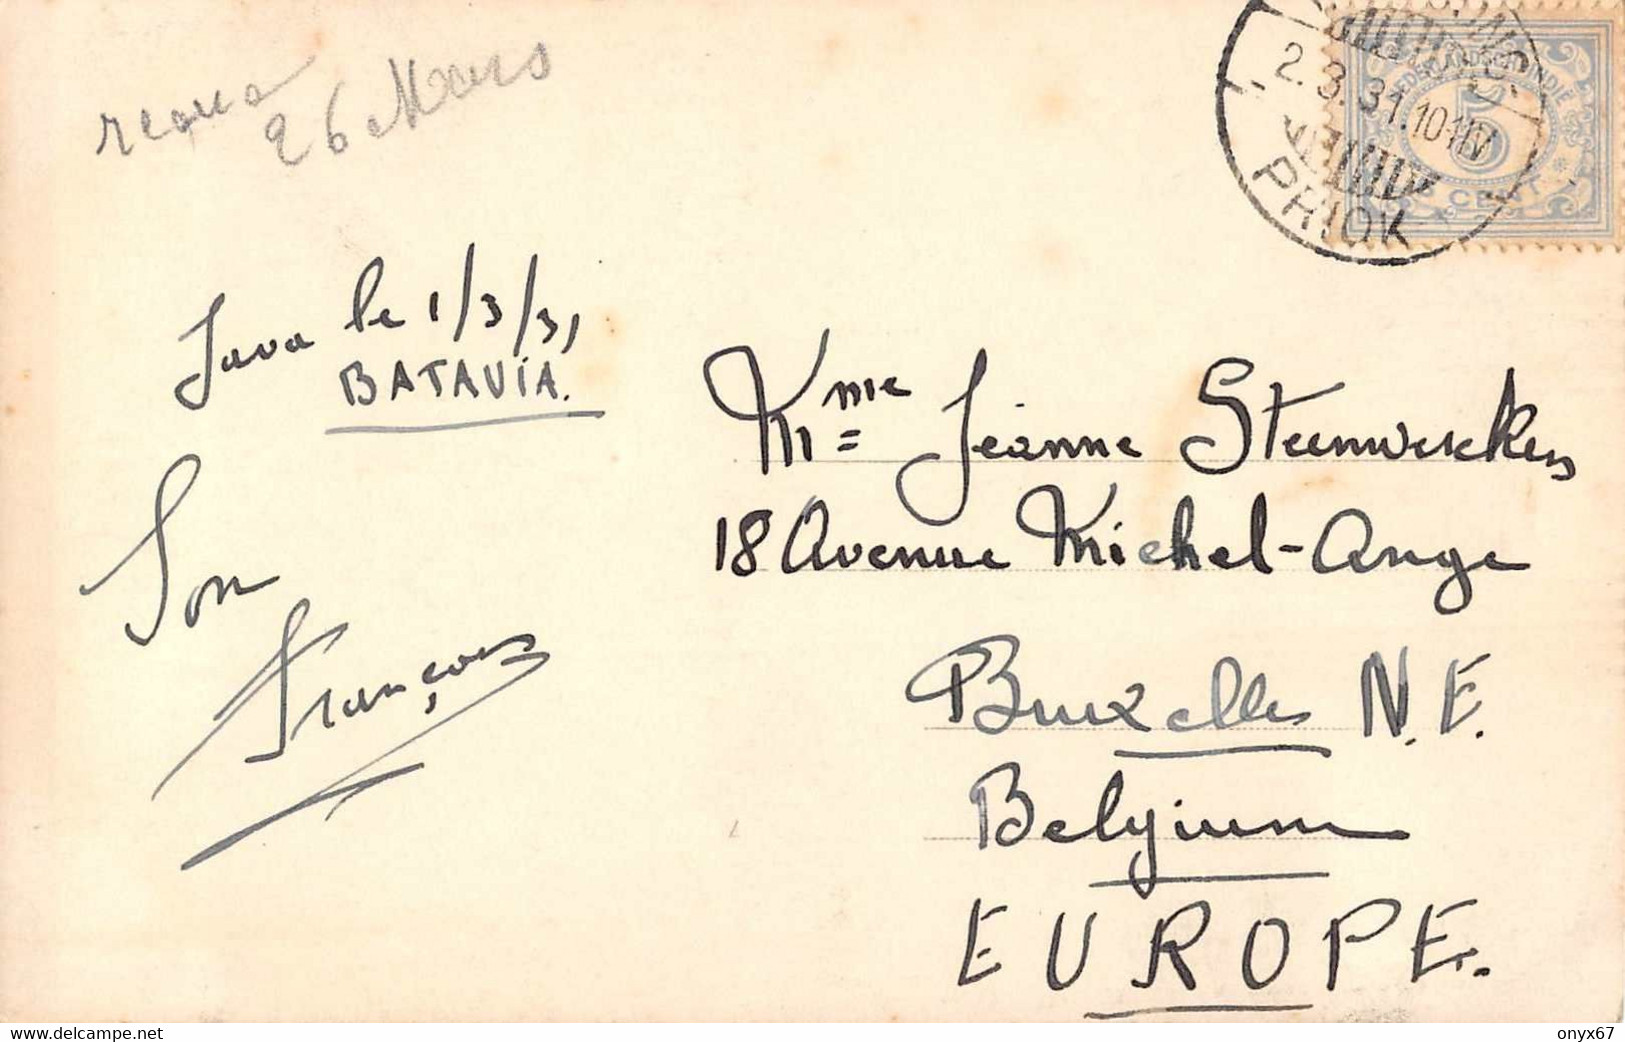 26 Mars
2.3.31.10-11V
PRIOK
NEDERLANDSCH-INDIE
5
CENT
Java le 1/3/31
BATAVIA.
Son
François
Mme Jeanne Steenwerckers
18 Avenue Michel-Ange
Bruxelles N.E.
Belgium
EUROPE.
delcampe.net
onyx67